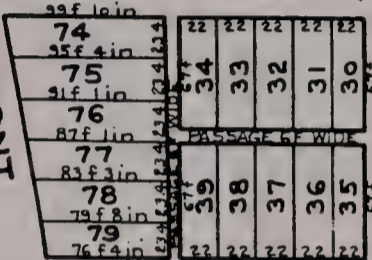 99f 10in
74
95f 4in
75
91f 1in
76
87f 1in
77
83f 3in
78
79f 8in
79
76f 4in
23 4
23 4
23 4
23 4
23 4
23 4
WIDE
22 22 22 22 22
34 33 32 31 30
67f 67f
PASSAGE 6F WIDE
39 38 37 36 35
67f 67f
22 22 22 22 22